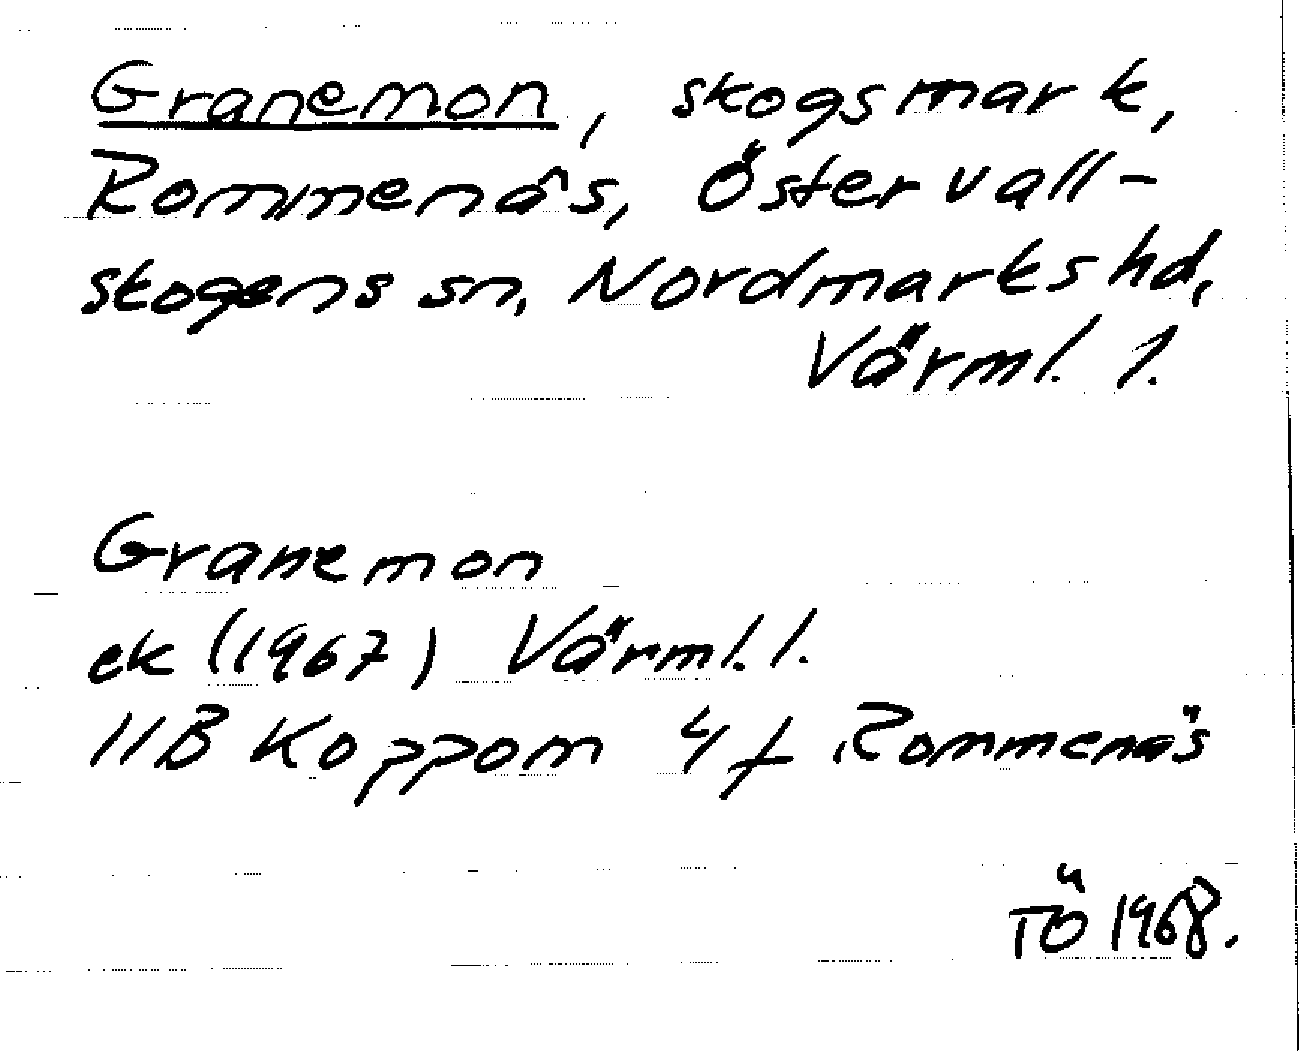 Granemon, skogsmark,
Rommenäs, Östervall-
skogens sn, Nordmarks hd,
Värml. l.
Granemon
ek (1967) Värml. l.
11B Koppom 4f Rommenäs
TÖ 1968.